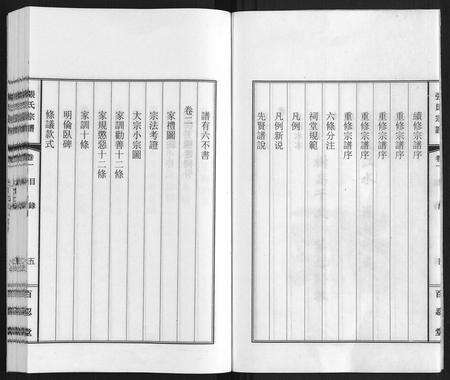 續修宗譜序
重修宗譜序
重修宗譜序
重修宗譜序
重修宗譜序
六條分注
祠堂規範
凡例
凡例新说
先賢譜說
百忍堂
諸有六不書
卷二
家禮圖
宗法考證
大宗小宗圖
家訓勸善十二条
家規懲惡十二條
家訓十條
明倫臥碑
條議款式
張氏宗譜
卷一
目錄
五
百忍堂